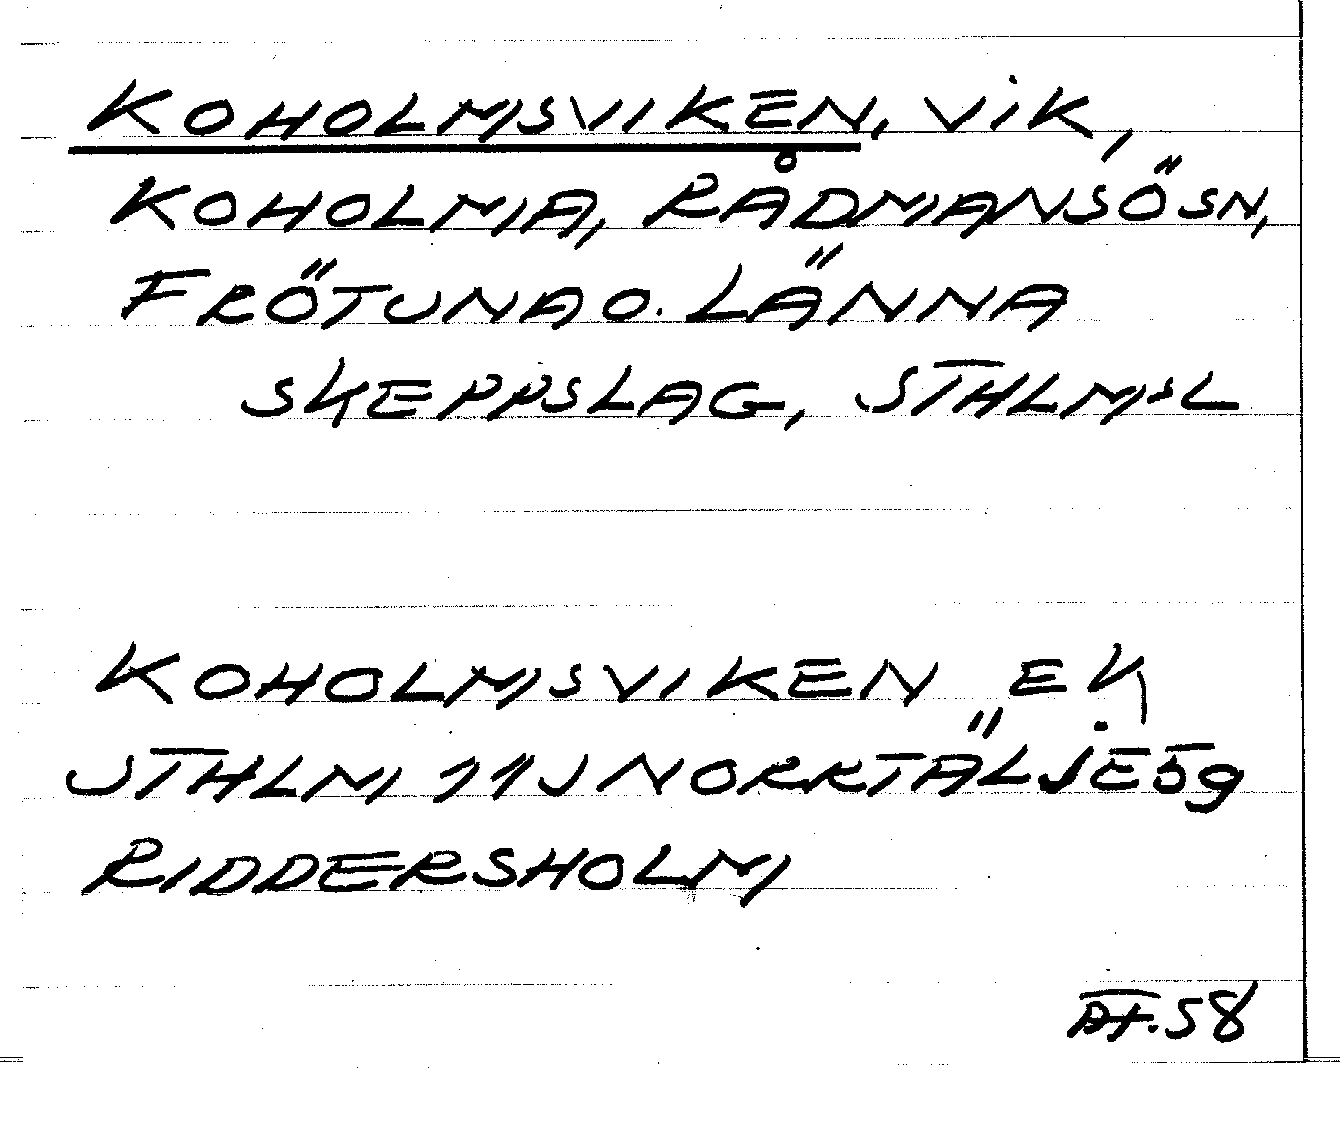 KOHOLMSVIKEN, VIK,
KOHOLMA, RÅDMANSÖ SN,
FRÖTUNA O. LÄNNA
SKEPPSLAG, STHLMSL
KOHOLMSVIKEN EK
STHLM 11J NORRTÄLJE 59
RIDDERSHOLM
58